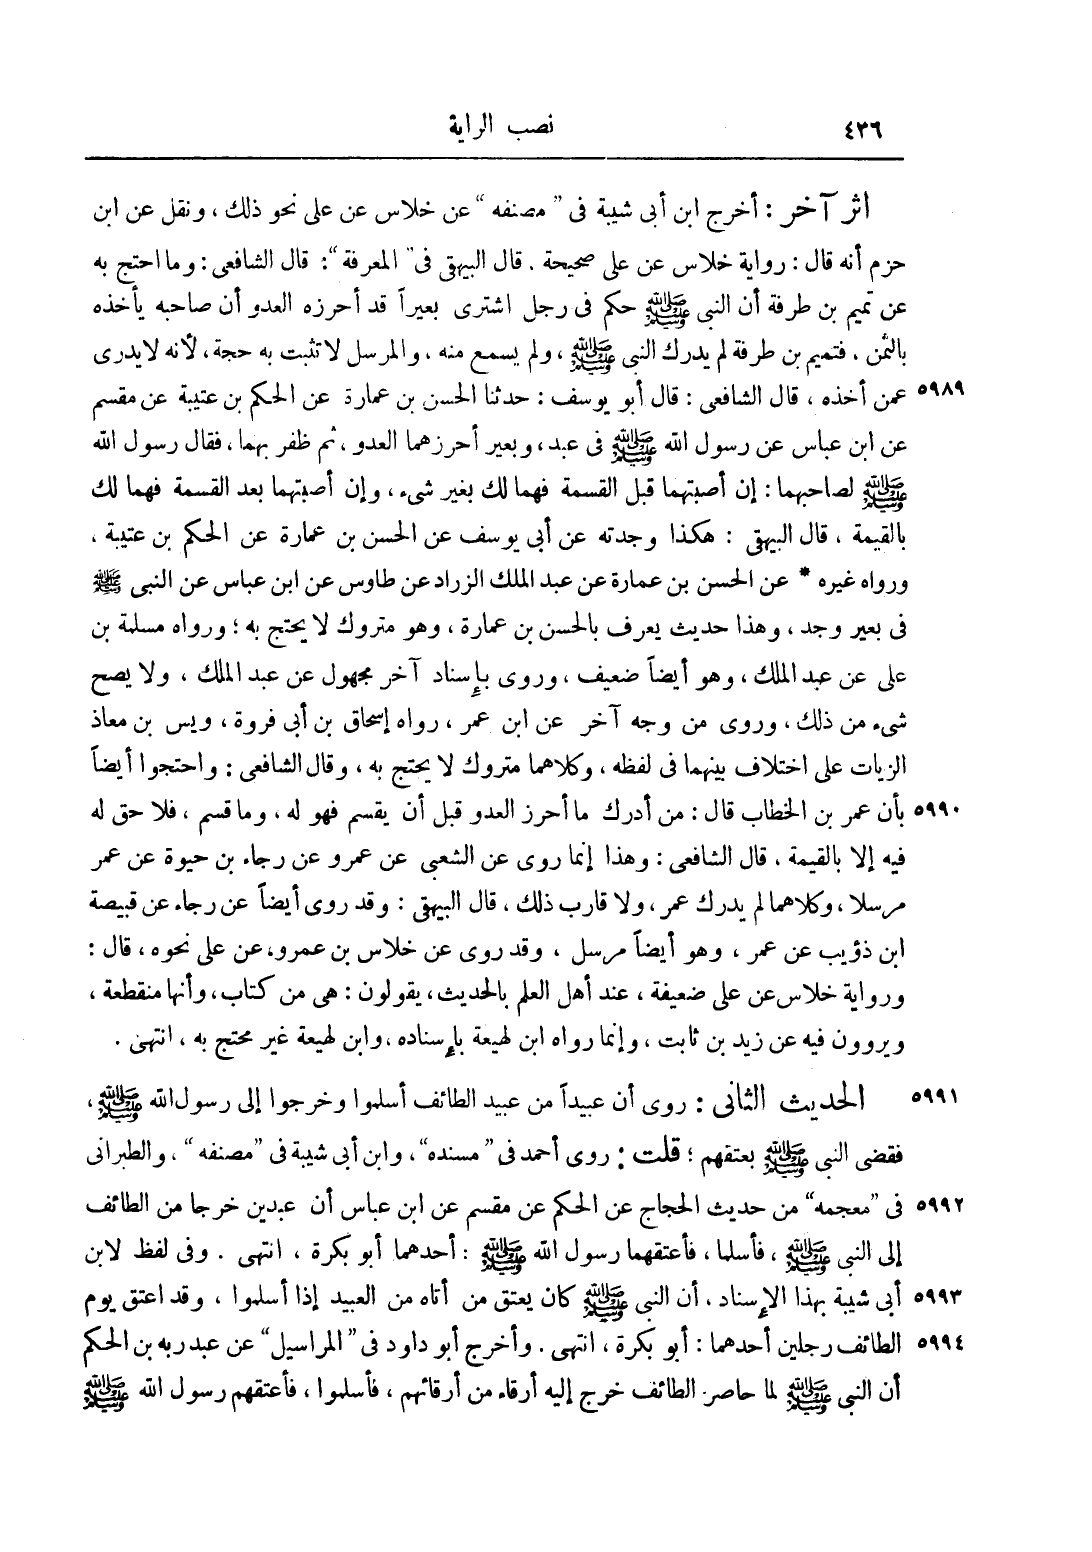 ٤٣٦ نصب الراية
أثر آخر : أخرج ابن أبى شيبة فى " مصنفه " عن خلاس عن على نحو ذلك ، ونقل عن ابن
حزم أنه قال : رواية خلاس عن على صحيحة . قال البيهقى فى " المعرفة " : قال الشافعى : وما احتج به
عن تميم بن طرفة أن النبى ﷺ حكم فى رجل اشترى بعيراً قد أحرزه العدو أن صاحبه يأخذه
بالثمن ، فتميم بن طرفة لم يدرك النبى ﷺ ، ولم يسمع منه ، والمرسل لا تثبت به حجة ، لأنه لا يدرى
٥٩٨٩ عمن أخذه ، قال الشافعى : قال أبو يوسف : حدثنا الحسن بن عمارة عن الحكم بن عتيبة عن مقسم
عن ابن عباس عن رسول الله ﷺ فى عبد ، وبعير أحرزهما العدو ، ثم ظفر بهما ، فقال رسول الله
ﷺ لصاحبهما : إن أصبتهما قبل القسمة فهما لك بغير شىء ، وإن أصبتهما بعد القسمة فهما لك
بالقيمة ، قال البيهقى : هكذا وجدته عن أبى يوسف عن الحسن بن عمارة عن الحكم بن عتيبة ،
ورواه غيره * عن الحسن بن عمارة عن عبد الملك الزراد عن طاوس عن ابن عباس عن النبى ﷺ
فى بعير وجد ، وهذا حديث يعرف بالحسن بن عمارة ، وهو متروك لا يحتج به ؛ ورواه مسلمة بن
على عن عبد الملك ، وهو أيضاً ضعيف ، وروى بإسناد آخر مجهول عن عبد الملك ، ولا يصح
شىء من ذلك ، وروى من وجه آخر عن ابن عمر ، رواه إسحاق بن أبى فروة ، ويس بن معاذ
الزيات على اختلاف بينهما فى لفظه ، وكلاهما متروك لا يحتج به ، وقال الشافعى : واحتجوا أيضاً
٥٩٩٠ بأن عمر بن الخطاب قال : من أدرك ما أحرز العدو قبل أن يقسم فهو له ، وما قسم ، فلا حق له
فيه إلا بالقيمة ، قال الشافعى : وهذا إنما روى عن الشعبى عن عمرو عن رجاء بن حيوة عن عمر
مرسلا ، وكلاهما لم يدرك عمر ، ولا قارب ذلك ، قال البيهقى : وقد روى أيضاً عن رجاء عن قبيصة
ابن ذؤيب عن عمر ، وهو أيضاً مرسل ، وقد روى عن خلاس بن عمرو ، عن على نحوه ، قال :
ورواية خلاس عن على ضعيفة ، عند أهل العلم بالحديث ، يقولون : هى من كتاب ، وأنها منقطعة ،
ويروون فيه عن زيد بن ثابت ، وإنما رواه ابن لهيعة بإسناده ، وابن لهيعة غير محتج به ، انتهى .
٥٩٩١ الحديث الثانى : روى أن عبيداً من عبيد الطائف أسلموا وخرجوا إلى رسول الله ﷺ ،
فقضى النبى ﷺ بعتقهم ؛ قلت : روى أحمد فى " مسنده " ، وابن أبى شيبة فى " مصنفه " ، والطبرانى
٥٩٩٢ فى " معجمه " من حديث الحجاج عن الحكم عن مقسم عن ابن عباس أن عبدين خرجا من الطائف
إلى النبى ﷺ ، فأسلما ، فأعتقهما رسول الله ﷺ : أحدهما أبو بكرة ، انتهى . وفى لفظ لابن
٥٩٩٣ أبى شيبة بهذا الإسناد ، أن النبى ﷺ كان يعتق من أتاه من العبيد إذا أسلموا ، وقد اعتق يوم
٥٩٩٤ الطائف رجلين أحدهما : أبو بكرة ، انتهى . وأخرج أبو داود فى " المراسيل " عن عبد ربه بن الحكم
أن النبى ﷺ لما حاصر الطائف خرج إليه أرقاء من أرقائهم ، فأسلموا ، فأعتقهم رسول الله ﷺ